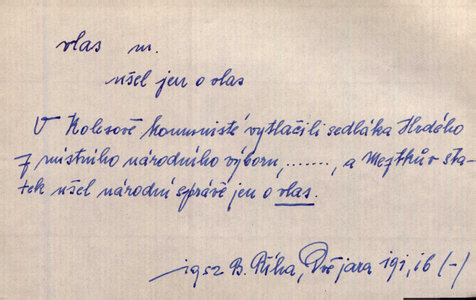 vlas m.
ušel jen o vlas
V Kolesově komunisté vytlačili sedláka Hrdého
z místního národního výboru, ......., a Mejtkův sta-
tek ušel národní správě jen o vlas.
1952 B. Říha, Dvě jara 191, ib (-)